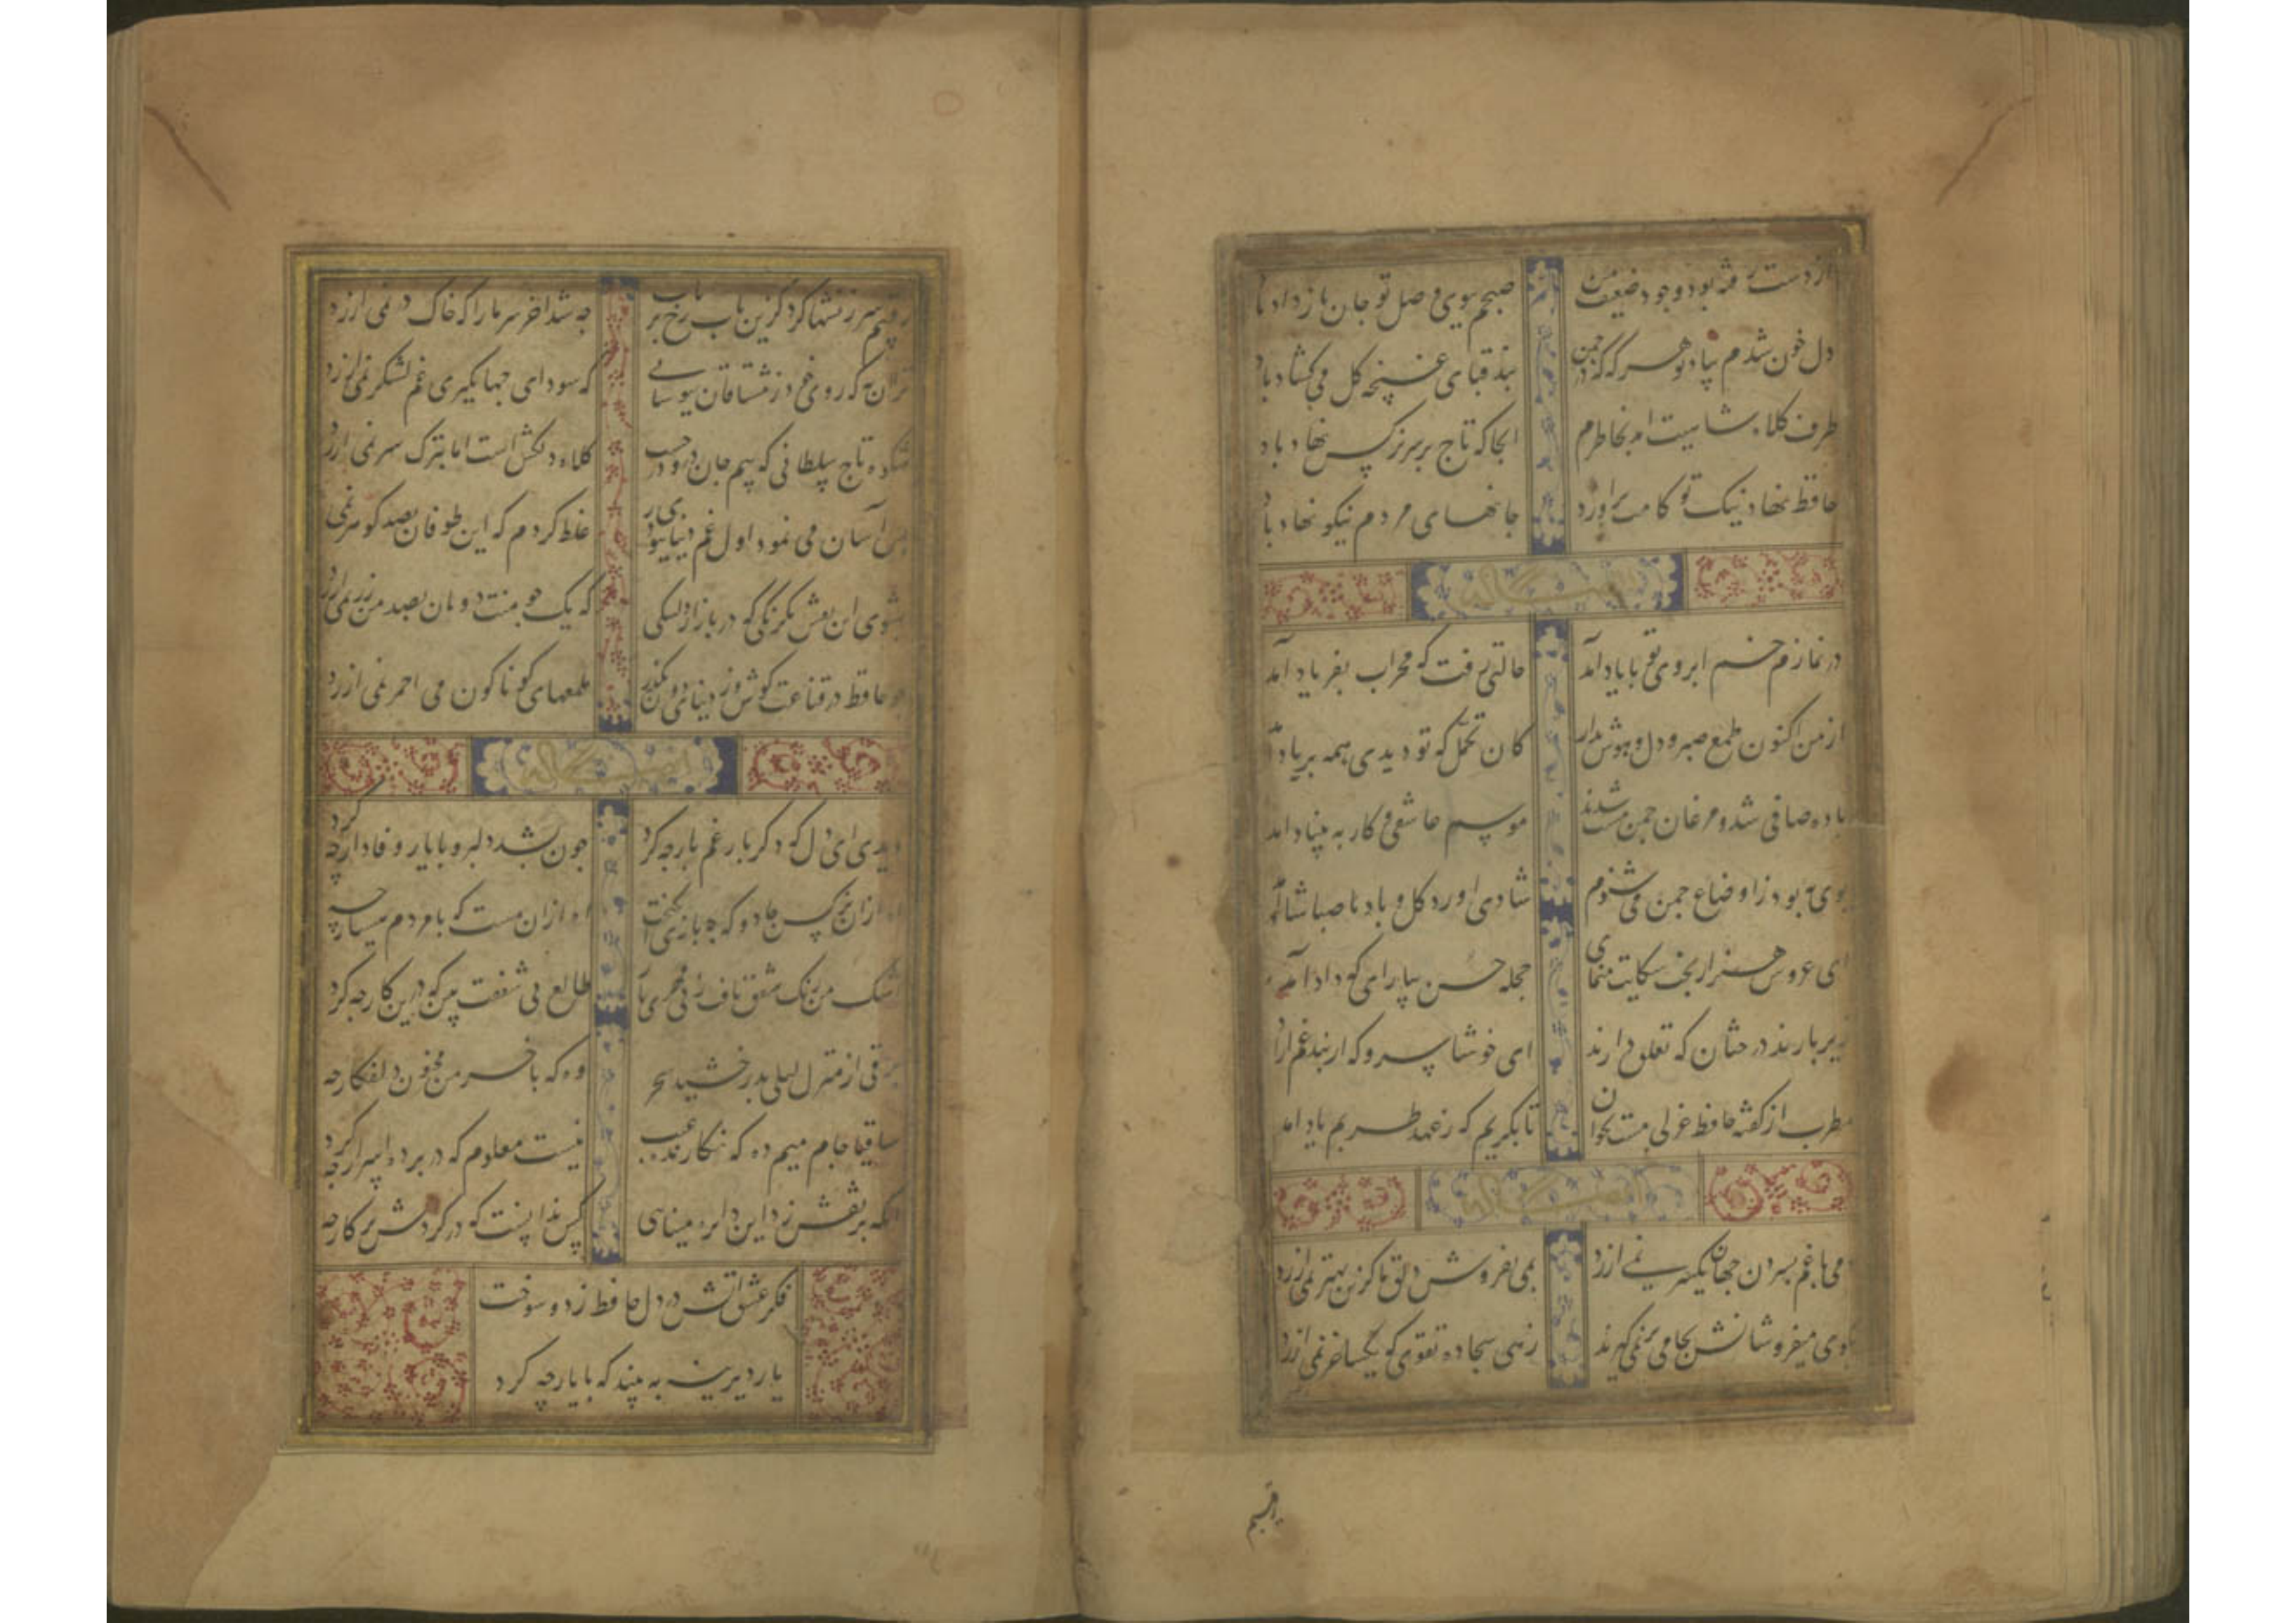 از دست رفته بود وجود ضعیف من
صبحم بوی وصل تو جان باز داد باد
دل خون شدم بیاد تو هر گه که در چمن
بند قبای غنچه گل می کشاد باد
طرف کلاه شاهیت امد بخاطرم
انجا که تاج بر سر نرکس نهاد باد
حافظ نهاد نیک تو کامت براورد
جانهای مردم نیکو نهاد باد
در نمازم خم ابروی تو با یاد آمد
حالتی رفت که محراب بفریاد آمد
از من کنون طمع صبر و دل و هوش مدار
کان تحمل که تو دیدی همه بر باد آمد
باده صافی شد و مرغان چمن مست شدند
موسم عاشقی و کار به بنیاد امد
بوی بهبود ز اوضاع جمن می شنوم
شادی اورد کل و باد صبا شاد آمد
ای عروس هنر از بخت شکایت منمای
حجله حسن بیارای که داماد آمد
زیر بارند درختان که تعلق دارند
ای خوشا سرو که از بند غم ازاد
مطرب از کفته حافظ غزلی مست بخوان
تا بکریم که ز عهد طربم یاد امد
دمی با غم بسر بردن جهان یکسر نمی ارزد
بمی بفروش دلق ما کزین بهتر نمی ارزد
بکوی میفروشانش بجامی بر نمی کیرند
زهی سجاده تقوی که یک ساغر نمی ارزد
رقیبم
رقیبم سرزنشها کرد کزین باب رخ برتاب
چه شد اخر سر ما را که خاک در نمی ارزد
ترا ان به که روی خود ز مشتاقان بپوشانی
که سودای جهانکیری غم لشکر نمی ارزد
شکوه تاج سلطانی که بیم جان درو درجست
کلاه دلکش است اما بترک سر نمی ارزد
بس آسان می نمود اول غم دنیا ببوی
غلط کردم که این طوفان بصد کوهر نمی
بشوی این نقش یکرنکی که در بازار
که یک جو منت دونان بصد من زر نمی ارزد
چو حافظ در قناعت کوش وز دنیای دون بکذر
ملمعهای کوناکون می احمر نمی ارزد
دیدی ای دل که دکر بار غم یار چه کرد
چون بشد دلبر و با یار وفادار چه کرد
از ان نرکس جادو که چه بازی انکیخت
اه ازان مست که با مردم هشیار چه
اشک من رنک شفق یافت ز بی مهری یار
طالع بی شفقت بین که درین کار چه کرد
برقی از منزل لیلی بدرخشید سحر
وه که با خرمن مجنون دلفکار چه
ساقیا جام میم ده که نکارنده غیب
نیست معلوم که در پرده اسرار چه کرد
انکه بر نقش زد این دایره مینایی
کس ندانست که در کردش پرکار چه
فکر عشق اتش در دل حافظ زد و سوخت
یار دیرینه به بیند که با یار چه کرد